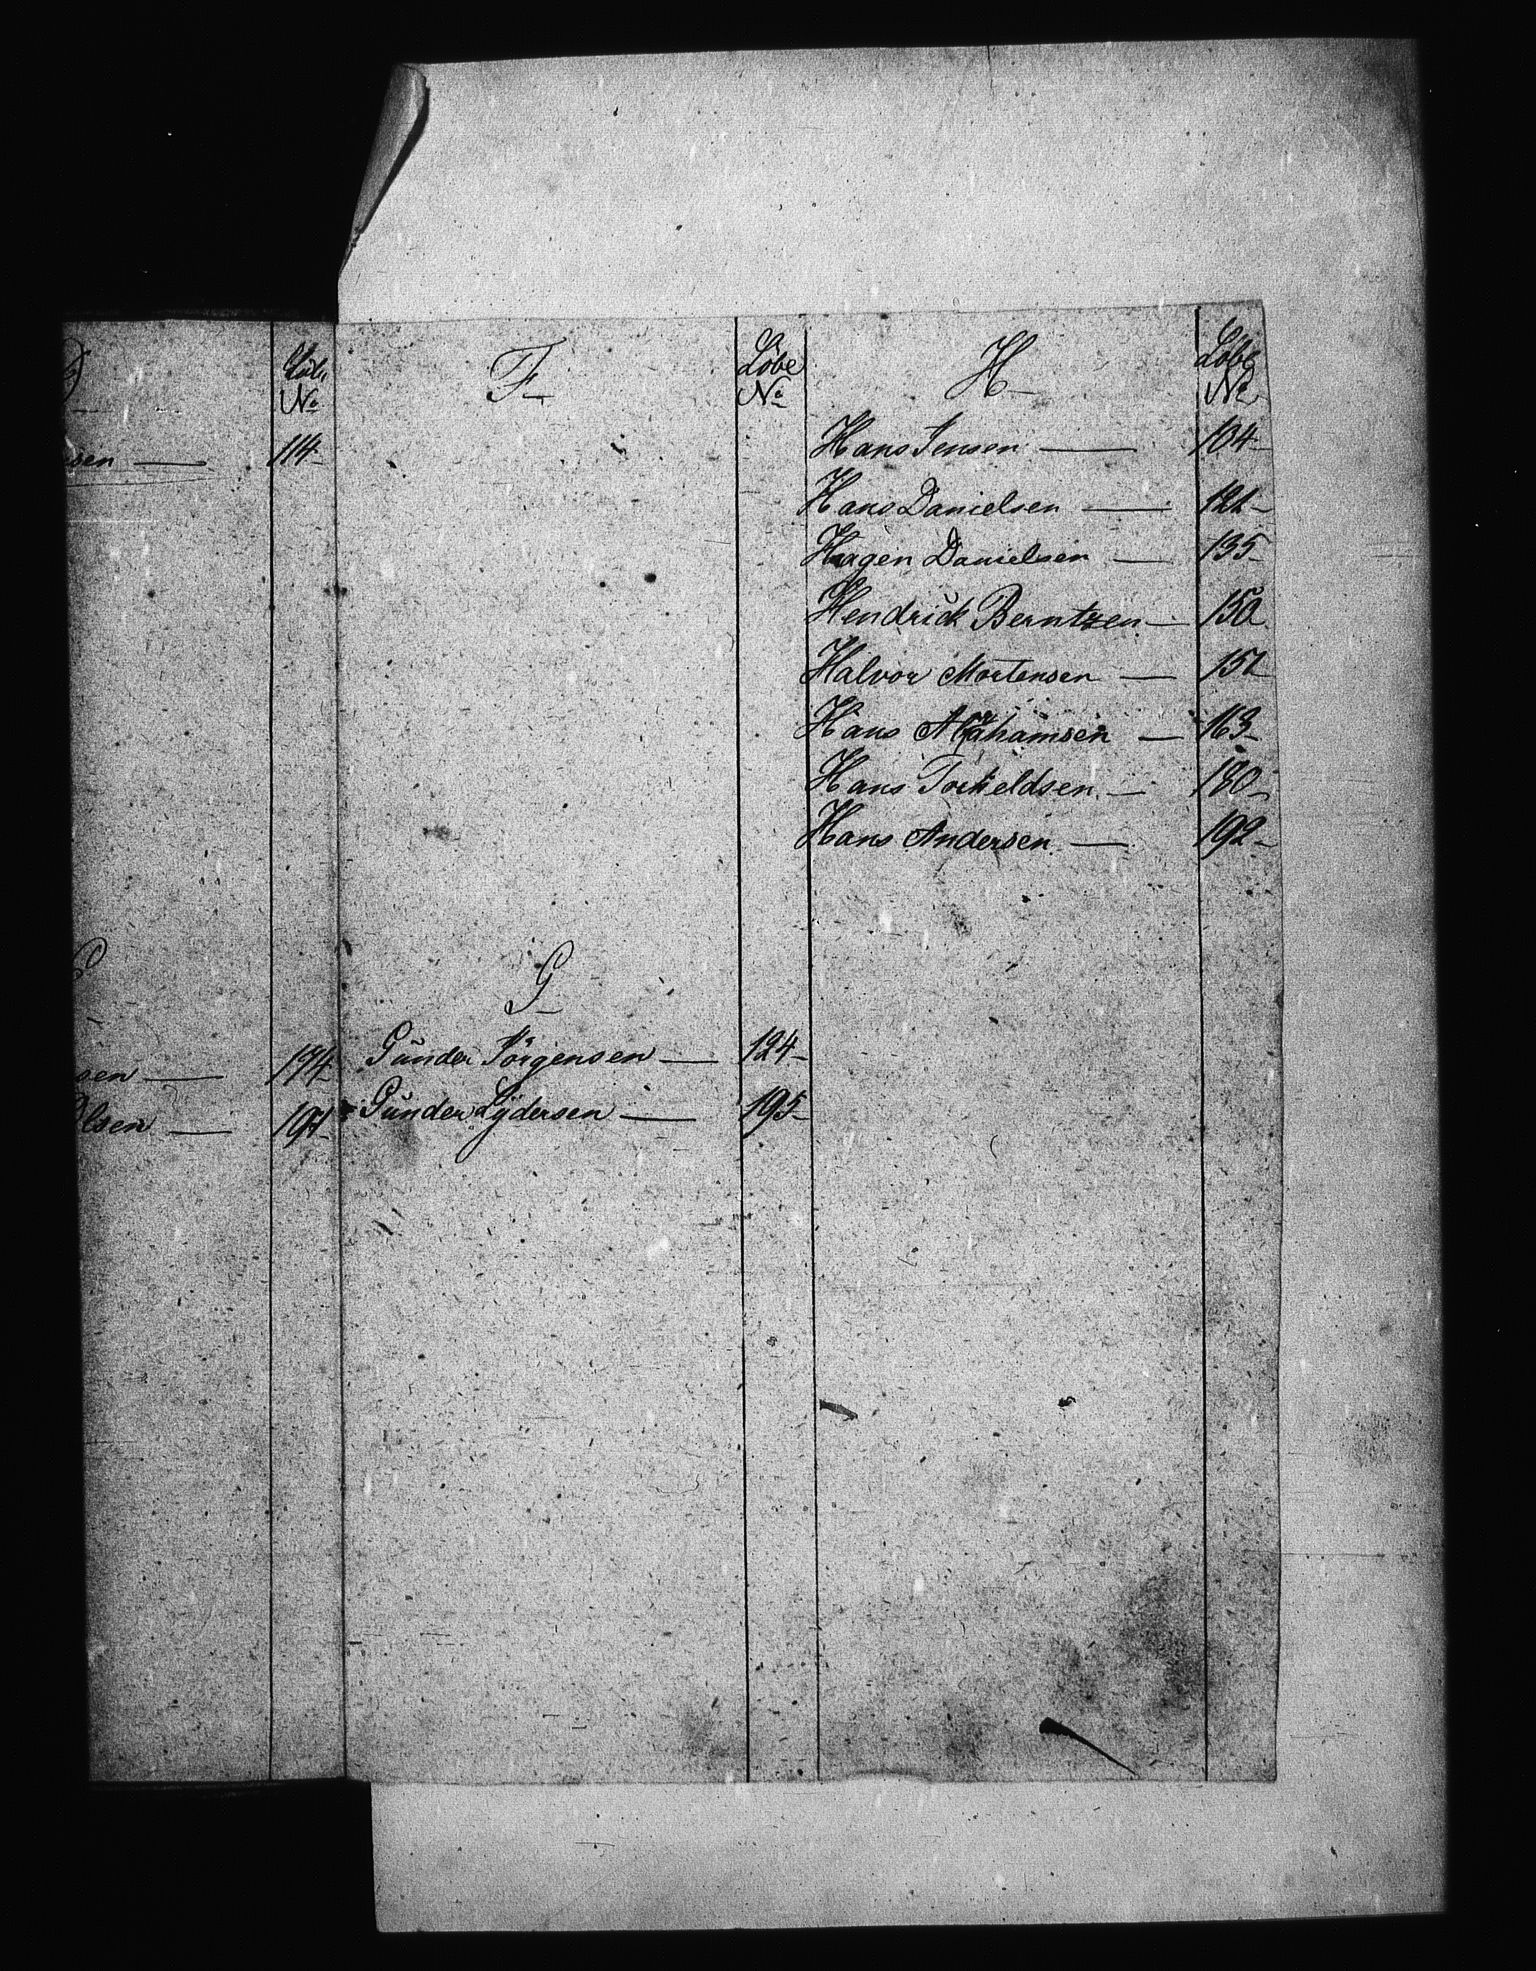 Löbe
No
sen — 114
sen — 174
Olsen — 191
F
Löbe
No
G
Gunder Jörgensen — 124
Gunder Lydersen — 195
H
Löbe
No
Hans Jensen — 104
Hans Danielsen — 121
Hagen Danielsen — 135
Hendrick Berntzen — 150
Halvor Mortensen — 151
Hans Abrahamsen — 163
Hans Torkeldsen — 180
Hans Andersen — 192